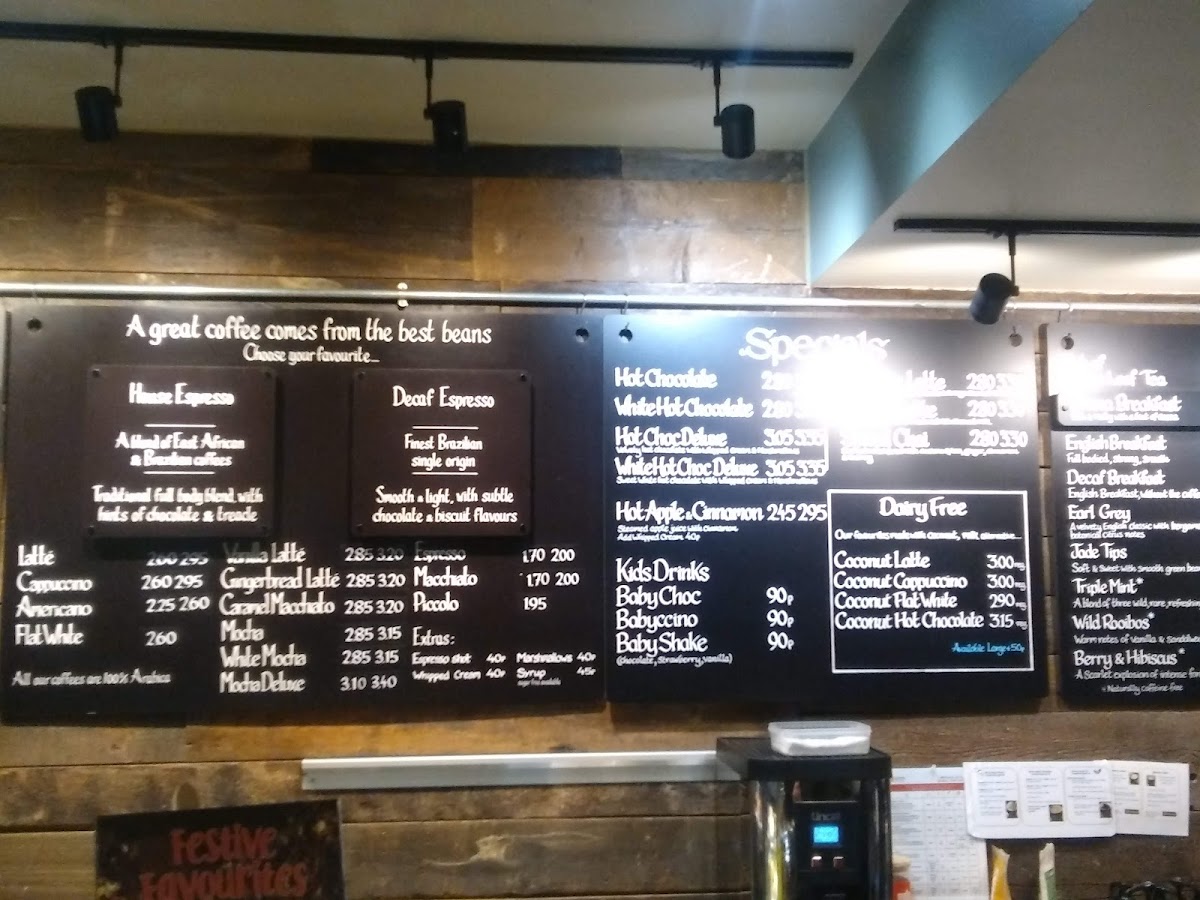 A great coffee comes from the best beans
Choose your favourite...
House Espresso
A blend of East African
& Brazilian coffees
Traditional full body blend, with
hints of chocolate & treacle
Decaf Espresso
Finest Brazilian
single origin
Smooth & light, with subtle
chocolate & biscuit flavours
Latté 260 295
Cappuccino 260 295
Americano 2.25 260
Flat White 260
All our coffees are 100% Arabica
Vanilla Latté 2.85 3.20
Gingerbread Latté 2.85 3.20
Caramel Macchiato 2.85 3.20
Mocha 2.85 3.15
White Mocha 2.85 3.15
Mocha Deluxe 3.10 3.40
Espresso 1.70 200
Macchiato 1.70 200
Piccolo 195
Extras:
Espresso shot 40p
Whipped Cream 40p
Marshmallows 40p
Syrup 45p
sugar free available
Specials
Hot Chocolate
White Hot Chocolate 280
Hot Choc Deluxe 3.05 3.35
Velvety hot chocolate with whipped cream & marshmallows
White Hot Choc Deluxe 3.05 3.35
Sweet white hot chocolate with whipped cream & marshmallows
Hot Apple & Cinnamon 2.45 2.95
Steamed apple juice with cinnamon
Add Whipped Cream 40p
Kids Drinks
Baby Choc 90p
Babyccino 90p
Baby Shake 90p
(chocolate, strawberry, vanilla)
Latte 2.80 3.30
280 3.30
Chai 280 3.30
Dairy Free
Our favourites made with coconut, milk alternative...
Coconut Latte 3.00 reg
Coconut Cappuccino 3.00 reg
Coconut Flat White 2.90 reg
Coconut Hot Chocolate 3.15 reg
Available Large + 50p
Leaf Tea
Breakfast
English Breakfast
Full bodied, strong, smooth
Decaf Breakfast
English Breakfast, without the
Earl Grey
A velvety English classic with
botanical citrus notes
Jade Tips
Soft & Sweet with smooth green
Triple Mint*
A blend of three wild, rare,
Wild Rooibos*
Warm notes of Vanilla &
Berry & Hibiscus*
A Scarlet explosion of intense
* Naturally caffeine free
Festive
Favourites